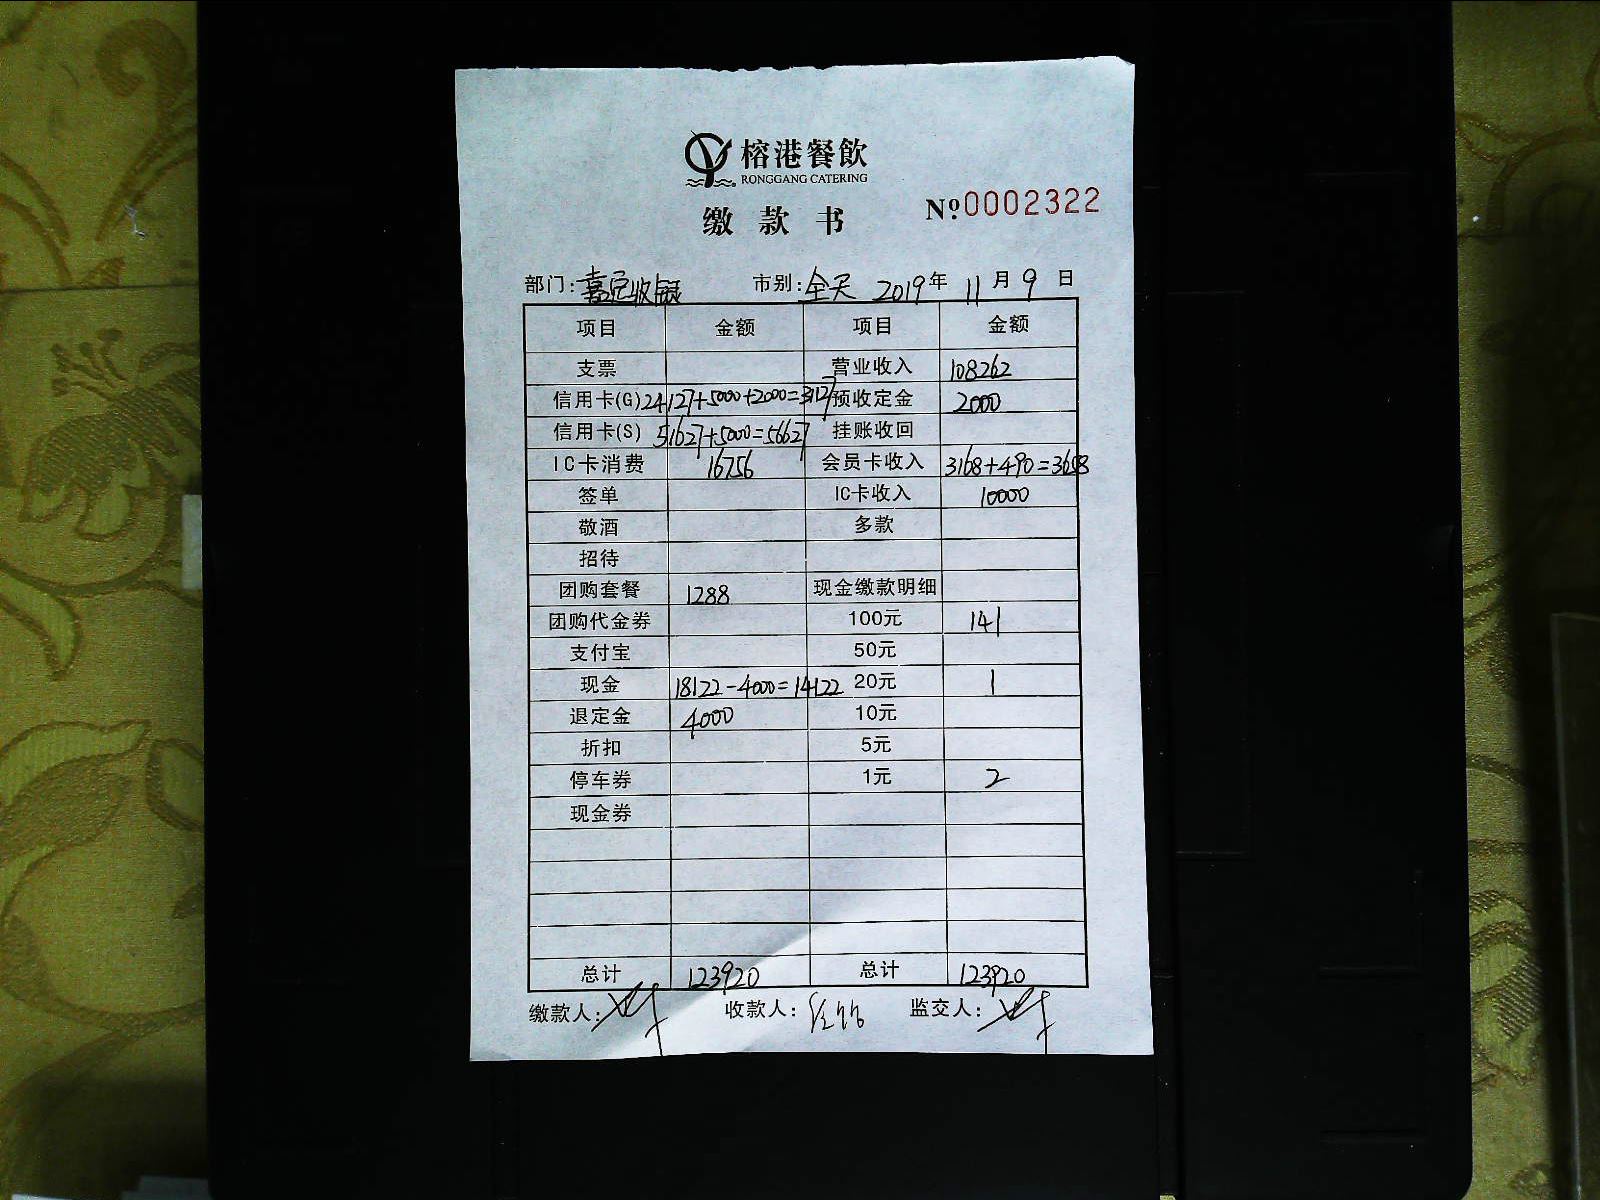 榕港餐飲
RONGGANG CATERING
缴款书 №0002322
部门:嘉定收银 市别:全天 2019年11月9日
项目 金额 项目 金额
支票 营业收入 108262
信用卡(G) 24127+5000+2000=31127 预收定金 2000
信用卡(S) 51627+5000=56627 挂账收回
IC卡消费 16756 会员卡收入 3168+490=3658
签单 IC卡收入 10000
敬酒 多款
招待
团购套餐 1288 现金缴款明细
团购代金券 100元 141
支付宝 50元
现金 18122-4000=14122 20元 1
退定金 4000 10元
折扣 5元
停车券 1元 2
现金券
总计 123920 总计 123920
缴款人: 收款人: 监交人: